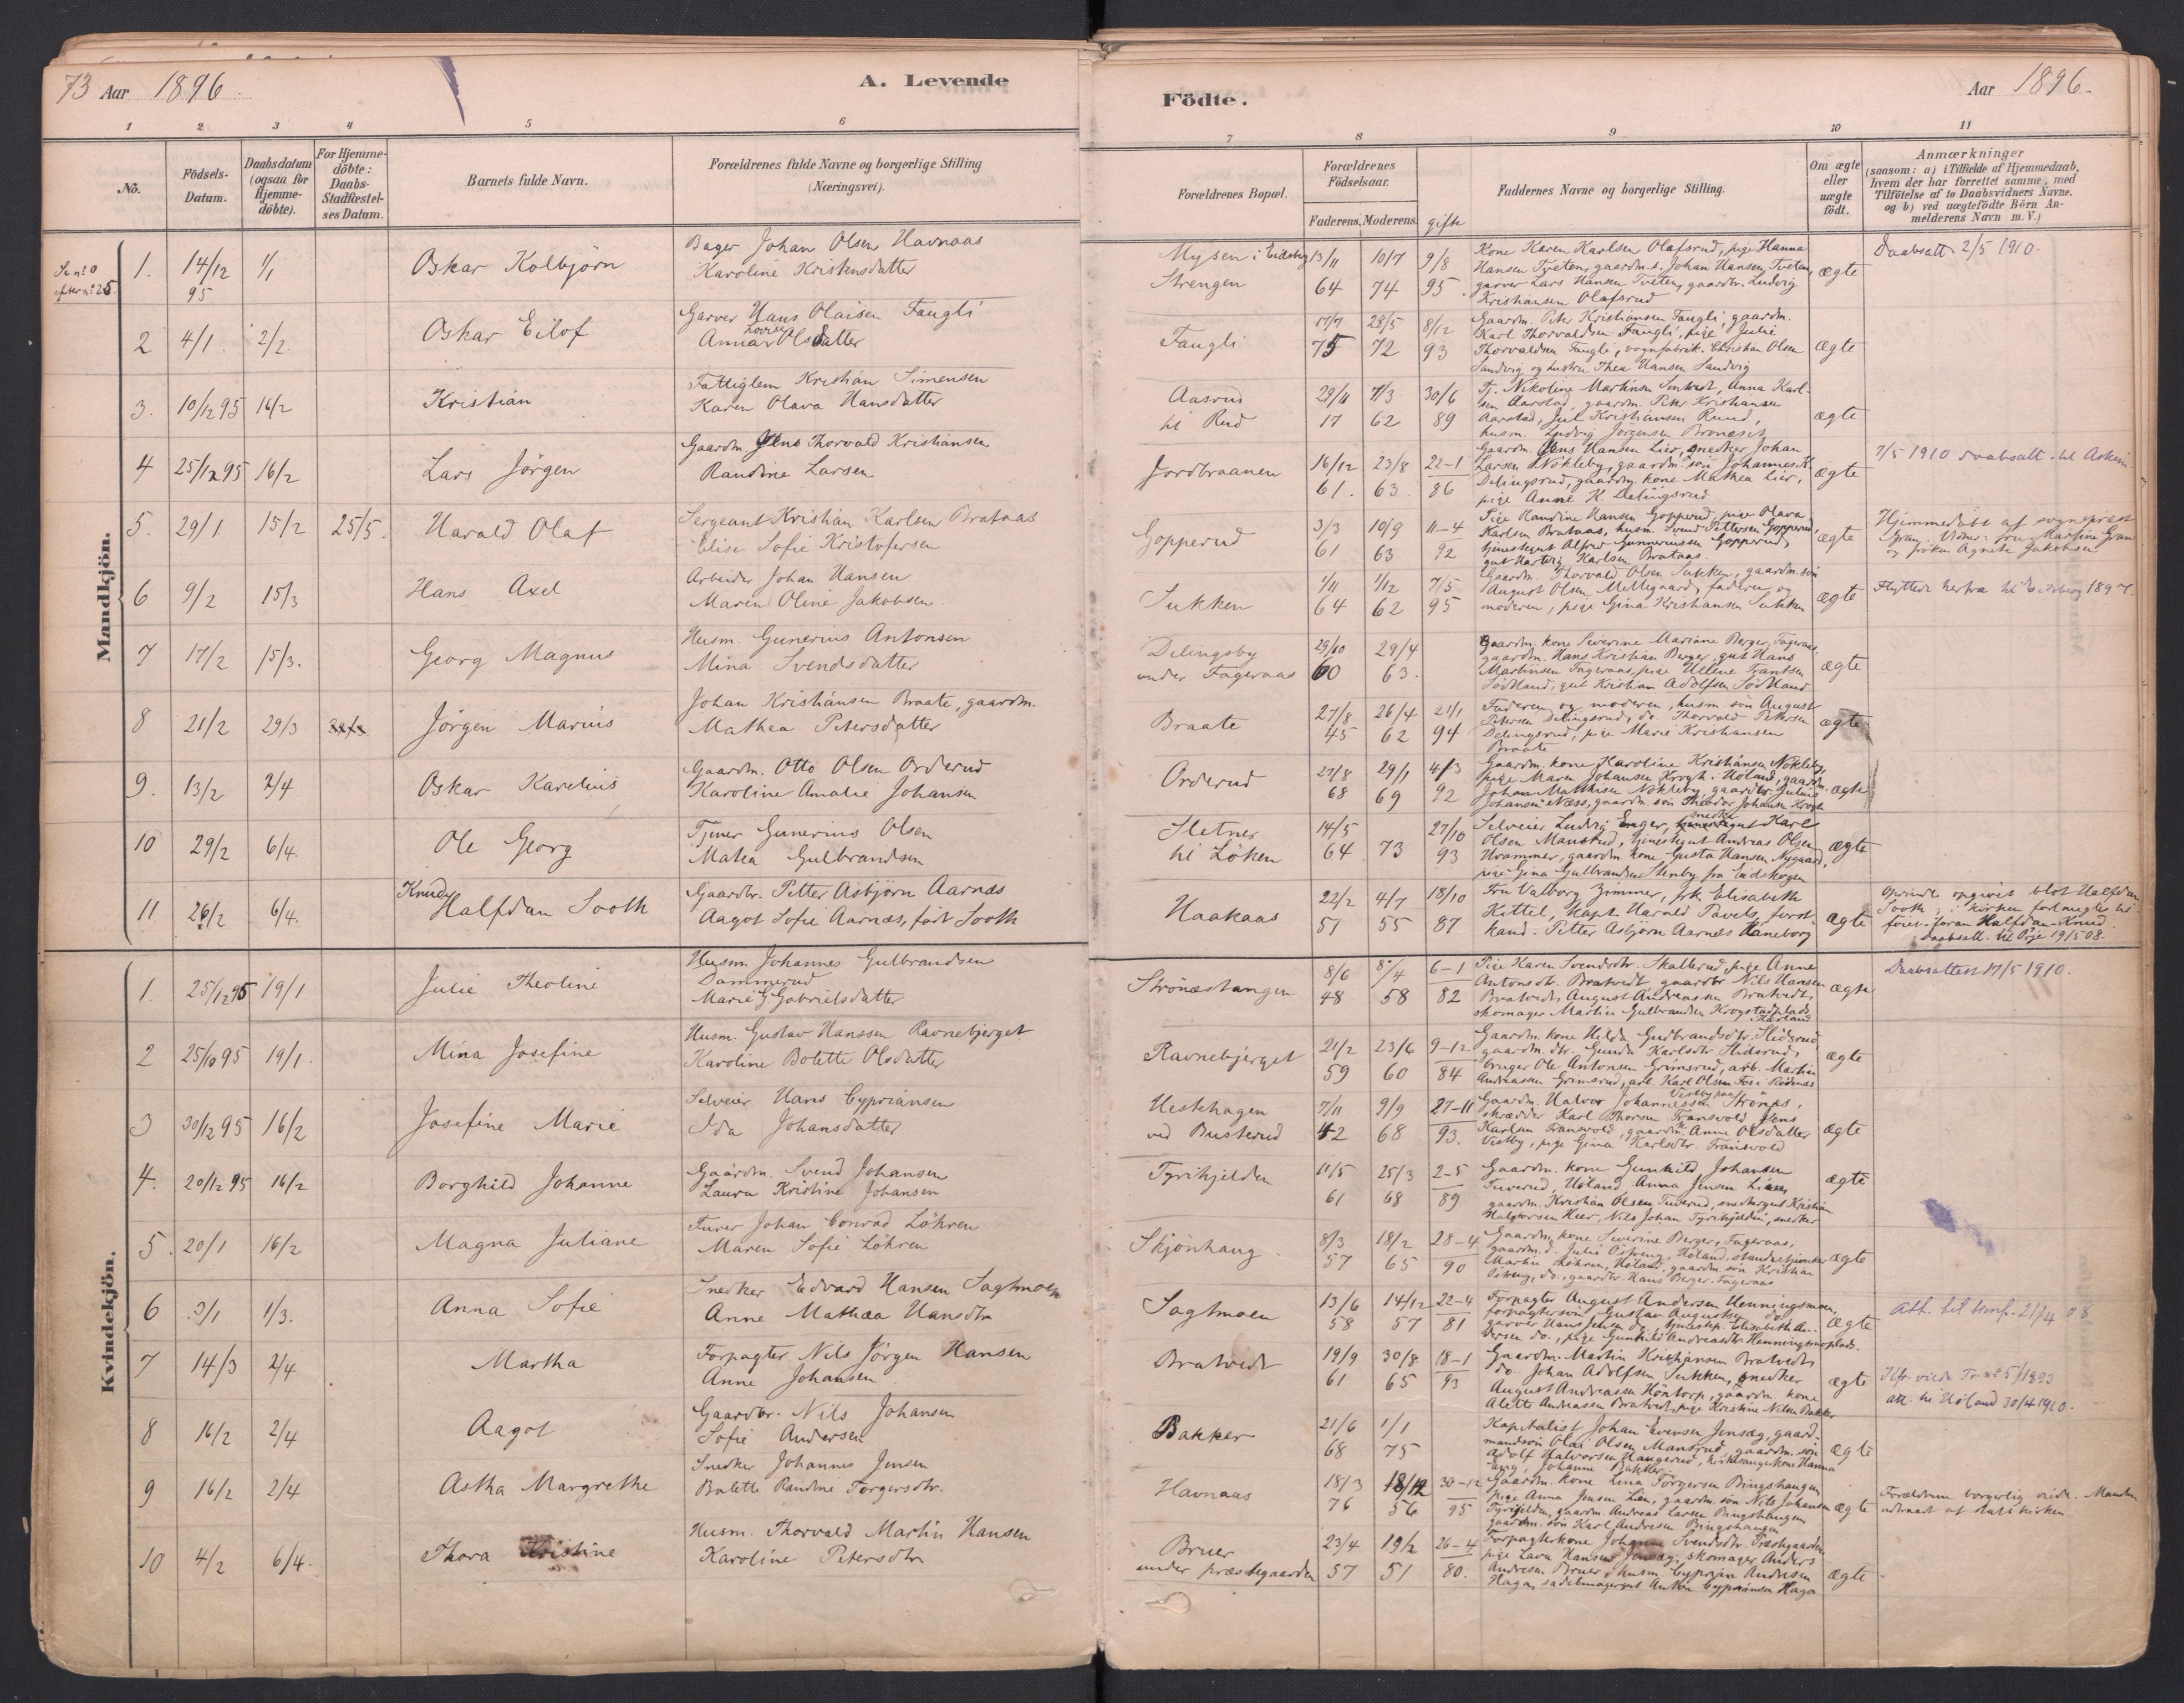 73 Aar 1896.
A. Levende
Födte.
Aar 1896.
1 2 3 4 5 6 7 8 9 10 11
No.
Födsels-Datum.
Daabsdatum (ogsaa for Hjemme-döbte).
For Hjemme-döbte: Daabs-Stadfæstel-ses Datum.
Barnets fulde Navn.
Forældrenes fulde Navne og borgerlige Stilling (Næringsvei).
Forældrenes Bopæl.
Forældrenes Födselsaar.
Faderens. Moderens. gifte
Faddernes Navne og borgerlige Stilling.
Om ægte eller uægte födt.
Anmærkninger (saasom: a) i Tilfælde af Hjemmedaab, hvem der har forrettet samme, med Tilföielse af to Daabsvidners Navne. og b) ved uægtefödte Börn An-melderens Navn m. V.)
Mandkjön.
1. 14/12 95 1/1 Oskar Kolbjörn
Bager Johan Olsen Havnaas
Karoline Kristensdatter
Mysen i Eidsberg
Strengen
13/11 64 10/7 74 9/8 95
Kone Karen Karlsen Olafsrud, pige Hanna
Hansen Tveten, gaardm.s. Johan Hansen Tveten,
garver Lars Hansen Tveten, gaardbr. Ludvig
Kristiansen Olafsrud
ægte
Daabsatt. 2/5 1910.
2 4/1. 2/2. Oskar Eilof
Garver Hans Olaisen Faugli
Anna Lovise Olsdatter
Faugli
17/7 75 28/5 72 8/12 93
Gaardm. Peter Kristiansen Faugli, gaardm.
Karl Thorvaldsen Faugli, pige Julie
Thorvaldsen Faugli, vognfabrik. Christian Olsen
Sandvig og hustru Thea Hansen Sandvig
ægte
3. 10/12 95 16/2 Kristian
Fattiglem Kristian Simensen
Karen Olava Hansdatter
Aasrud
til Rud
29/11 17 7/3 62 30/6 89
Tj. Nikoline Martinsen, Anna Karl-
sen Aarstad, gaardm. Peter Kristiansen
Aarstad, Jul. Kristiansen Ruud,
husm. Ludvig Jörgensen
ægte
4 25/12 95 16/2 Lars Jörgen
Gaardm. Jens Thorvald Kristiansen
Randine Larsen
Jordbraanen
16/12 61. 23/8 63. 22-1 86
Gaardm. Jens Hansen Lier, snedker Johan
Larsen Nökleby, gaardm. sön Johannes H.
Delingsrud, gaardm. kone Mathea Lier,
pige Anne H. Delingsrud
ægte
7/5 1910 daabsatt. til Askim.
5. 29/1 15/2 25/5. Harald Olaf
Sergeant Kristian Karlsen Brataas
Elise Sofie Kristofersen
Gopperud
3/3 61 10/9 63 11-4 92
Pige Randine Hansen Gopperud, pige Olava
Karlsen Brataas, husm. Svend Pettersen Gopperud,
tjenestegut Alfred Gunneriussen Gopperud,
gut Hartvig Karlsen Brataas.
ægte
Hjemmedöbt af sognepræst
Gran. Vidner: fru Martine Gran
og fröken Agnete Jakobsen
6 9/2 15/3 Hans Axel
Arbeider Johan Hansen
Maren Oline Jakobsen.
Sukken
1/11 64 1/12 62 7/5 95
Gaardm. Thorvald Olsen Sukken, gaardm. sön
August Olsen Mellegaard, faderen og
moderen, pige Gina Kristiansen Sukken
ægte
Flyttede herfra til Eidsberg 1897.
7 17/2 15/3. Georg Magnus
Husm. Gunerius Antonsen
Mina Svendsdatter
Delingsby
under Fageraas
29/10 60 29/4 63.
Gaardm. kone Severine Mariane Berger, Fageraas,
gaardm. Hans Kristian Berger, gut Hans
Martinsen Fageraas, pige Helene Frantsen
, gut Kristian Adolfsen
ægte
8 21/2 29/3 Jörgen Marius
Johan Kristiansen Braate, gaardm.
Mathea Petersdatter
Braate
27/8 45 26/4 62 21/1 94
Faderen og moderen, husm. sön August
Petersen Delingsrud, do. Thorvald Petersen
Delingsrud, pige Marie Kristiansen
Braate
ægte
9. 13/2 2/4 Oskar Karelius
Gaardm. Otto Olsen Orderud
Karoline Amalie Johansen
Orderud
27/8 68 29/1 69 4/3 92
Gaardm. kone Karoline Kristiansen Nökleby,
pige Maren Johansen Krogh i Höland, gaardm.
Johan Matthisen Nökleby, gaardbr. Julius
Johansen Næss, gaardm. sön Theodor Johansen Krogh
ægte
10 29/2 6/4. Ole Georg
Tjener Gunerius Olsen
Matea Gulbrandsen
Sletner
til Löken
14/5 64 73 27/10 93
Selveier Ludvig Enger, snedker Karl
Olsen Manstrud, tjenestegut Andreas Olsen
Krammer, gaardm. kone Gusta Hansen Nygaard,
pige Gina Gulbrandsen Stenby fra Eidskogen
ægte
11. 26/2 6/4. Knud Halfdan Sooth
Gaardbr. Petter Asbjörn Aarnæs
Aagot Sofie Aarnæs, födt Sooth
Haakaas
22/2 57 4/7 55 18/10 87
Fru Valborg Zimmer, frk. Elisabeth
Kittel, Kapt. Harald Pavels, forst-
kand. Petter Asbjörn Aarnæs Haneborg
ægte
Oprindl. opgivet blot Halfdan
Sooth; i kirken forlangtes til-
föiet foran Halfdan - Knud.
Daabsatt. til Örje 19/5 08.
Kvindekjön.
1. 25/12 95 19/1 Julie Theoline
Husm. Johannes Gulbrandsen
Dammerud
Marie G. Gabrielsdatter
Strönæstangen
8/6 48 8/4 58 6-1 82
Pige Karen Svendsdtr. Skallerud, pige Anne
Antonsdtr. Bratvedt, gaardbr. Nils Hansen
Bratvedt, August Andreassen Bratvedt,
skomager Martin Gulbrandsen Krogstadplads
ægte
Daabsattest 17/5 1910.
2 25/10 95 19/1. Mina Josefine
Husm. Gustav Hanssen Ravnebjerget
Karoline Bolette Olsdatter
Ravnebjerget
21/2 59 23/6 60 9-12 84
Gaardm. kone Hilda Gudbrandsdtr. Slidsrud,
gaardm. dtr. Gunda Karlsdtr. Slidsrud,
bruger Ole Antonsen Grimsrud, arb. Martin
Andreassen Grimsrud, arb. Karl Olsen Fos i Rödenæs
ægte
3 30/12 95 16/2 Josefine Marie
Selveier Hans Cypriansen
Ida Johansdatter
Hestehagen
ved Busterud
7/11 42 9/9 68 27-11 93.
Gaardm. Halvor Johannessen Stromps,
skrædder Karl Thorsen Fransvold, Jens
Karlsen Fransvold, gaardm. k. Anne Olsdatter
Vestby, pige Gina Karlsdtr. Fransvold
ægte
4. 20/12 95 16/2 Borghild Johanne
Gaardm. Svend Johansen
Laura Kristine Johansen
Tyrihjelden
11/5 61 25/3 68 2-5 89
Gaardm. kone Gunhild Johansen
Tuverud, Höland, Anna Jensen Lien,
gaardm. Kristian Olsen Tuverud, snedkergut Kristian
Halvorsen Hier, Nils Johan Tyrihjelden, snedker
ægte
5. 20/1 16/2 Magna Juliane
Furer Johan Conrad Löhren
Maren Sofie Löhren
Skjönhaug
8/3 57 18/2 65 28-4 90
Gaardm. kone Severine Berger, Fageraas,
gaardm. d. Julie Östeng, Höland,
Martin Löhren, Höland, gaardm. sön Kristian
Östeng, do., gaardbr. Hans Berger, Fageraas
ægte
6 3/1 1/3. Anna Sofie
Snedker Edvard Hansen Sagtmoen
Anne Mathea Hansdtr.
Sagtmoen
13/6 58 14/12 57 22-4 81
Forpagter August Andersen Henningsmoen,
forpagtersön Gustav Augustsen do.
garver Hans Jensen do., tjenestep. Elisabeth An-
dersen do., pige Gunhild Andreasdtr. Henningsmoplads.
ægte
Att. til konf. 21/4 08
7 14/3 2/4 Martha
Forpagter Nils Jörgen Hansen
Anne Johansen
Bratvedt
19/9 61 30/8 65 18-1 93
Gaardm. Martin Kristiansen Bratvedt,
do. Johan Adolfsen Sukken, snedker
August Andreassen Höntorp, gaardm. kone
Alette Andreassen Bratvedt, pige Kristine Nilsen Bakker
ægte
Jfr. viede Tr. nº 5/1893
att. til Höland 30/4 1910.
8 16/2 2/4 Aagot
Gaardbr. Nils Johansen
Sofie Andersen
Bakker
21/6 68 1/1 75
Kapitalist Johan Evensen Jensæg, gaard-
mandsön Olai Olsen Manstrud, gaardm. sön
Adolf Halvorsen Haugerud, kirkesangerkone Hanna
Berg, Johanne Bakker
ægte
9 16/2 2/4 Astha Margrethe
Snedker Johannes Jensen
Bolette Randine Torgersdtr.
Havnaas
18/3 76 18/12 56 30-12 95
Gaardm. kone Lina Törgersen Bingshaugen,
pige Anna Jensen Lien, gaardm. sön Nils Johansen
Tyrihjelden, gaardm. Andreas Larsen Bingshaugen
gaardm. sön Karl Andresen Bingshaugen
ægte
Forældrene borgerlig viede. Manden
udmeldt af statskirken
10 4/2 6/4. Thora Kristine
Husm. Thorvald Martin Hansen
Karoline Petersdtr.
Bruer
under præstegaarden
23/4 57 19/2 51 26-4 80.
Forpagterkone Johanne Svendsdtr. Præstgaarden
pige Lava Hansen Jensæg, skomager Anders
Andresen Bruer, husm. Cyprian Andresen
Haga, sadelmagergut Anton Cypriansen Haga
ægte
Se nº 0
efter nº 25.